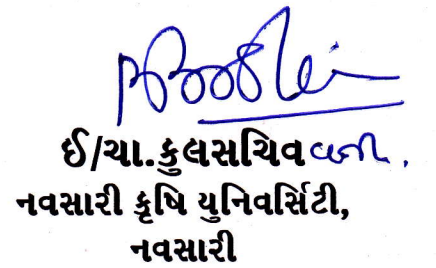 ઈ/ચા.કુલસચિવ વતી.
નવસારી કૃષિ યુનિવર્સિટી,
નવસારી